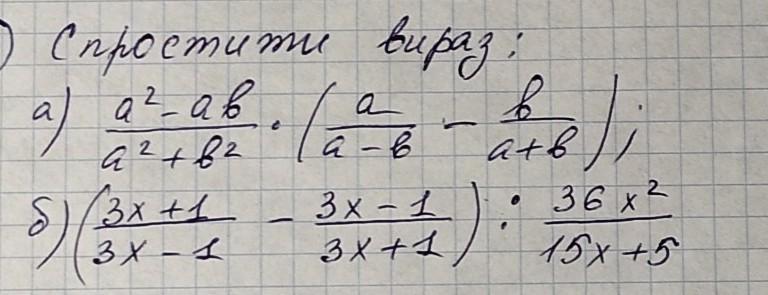 ) Спростити вираз:
а) \frac{a^2 - ab}{a^2 + b^2} \cdot \left( \frac{a}{a - b} - \frac{b}{a + b} \right);
б) \left( \frac{3x + 1}{3x - 1} - \frac{3x - 1}{3x + 1} \right) : \frac{36x^2}{15x + 5}